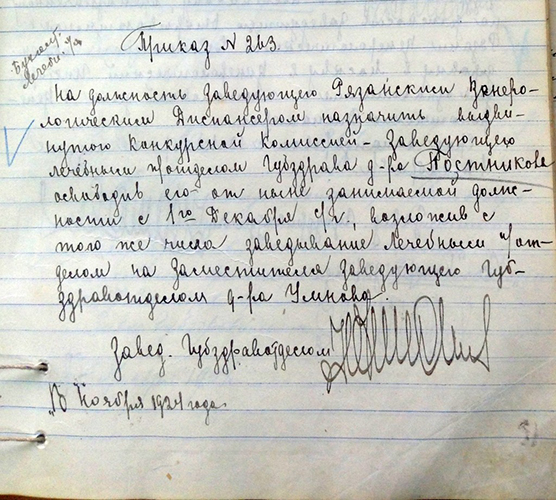 Приказ № 263.
На должность Заведующего Рязанским Венеро-
логическим Диспансером назначить выдви-
нутого Конкурсной Комиссией - Заведующего
лечебным п/отделом Губздрава д-ра Постникова
освободив его от ныне занимаемой долж-
ности с 1го Декабря с/г., возложив с
того же числа заведывание Лечебным п/от-
делом на Заместителя Заведующего Губ-
здравотделом д-ра Умнова.
Завед. Губздравотделом
Ноября 1924 года.